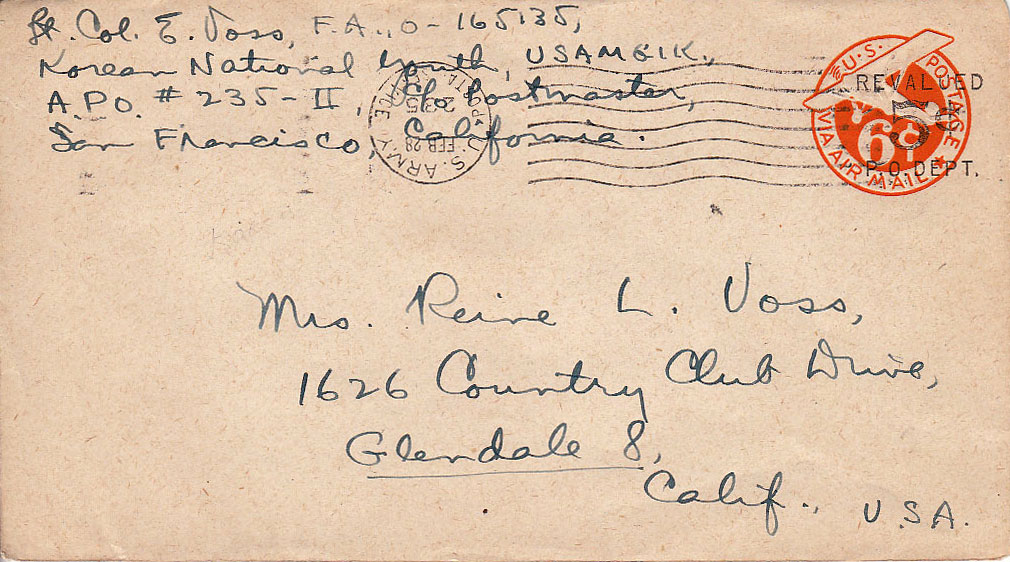 Lt. Col. E. Voss, F.A., O-165135,
Korean National Youth, USAMGIK,
A.P.O. # 235-II, c/o Postmaster,
San Francisco, California.
U.S. ARMY
FEB 28
U.S. POSTAGE
REVALUED
5
6¢
P.O. DEPT.
VIA AIR MAIL
Mrs. Reine L. Voss,
1626 Country Club Drive,
Glendale 8,
Calif., U.S.A.